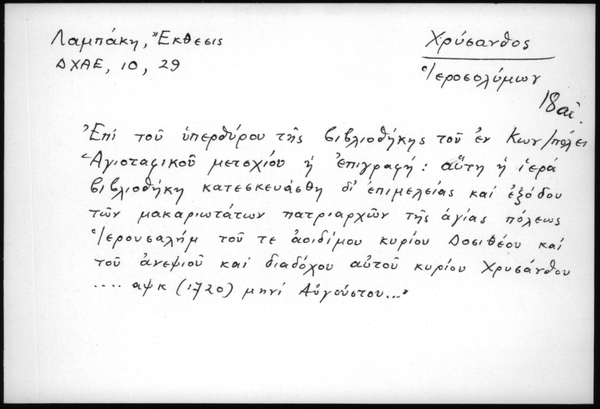 Λαμπάκη, Ἔκθεσις
ΔΧΑΕ, 10, 29
Χρύσανθος
Ἱεροσολύμων
18 αἰ.
Ἐπί τοῦ ὑπερθύρου τῆς βιβλιοθήκης τοῦ ἐν Κων/πόλει
Ἁγιοταφικοῦ μετοχίου ἡ ἐπιγραφή: αὕτη ἡ ἱερά
βιβλιοθήκη κατεσκευάσθη δι' ἐπιμελείας καί ἐξόδου
τῶν μακαριωτάτων πατριαρχῶν τῆς ἁγίας πόλεως
Ἱερουσαλήμ τοῦ τε ἀοιδίμου κυρίου Δοσιθέου καί
τοῦ ἀνεψιοῦ καί διαδόχου αὐτοῦ κυρίου Χρυσάνθου
.... αψκ (1720) μηνί Αὐγούστου..."